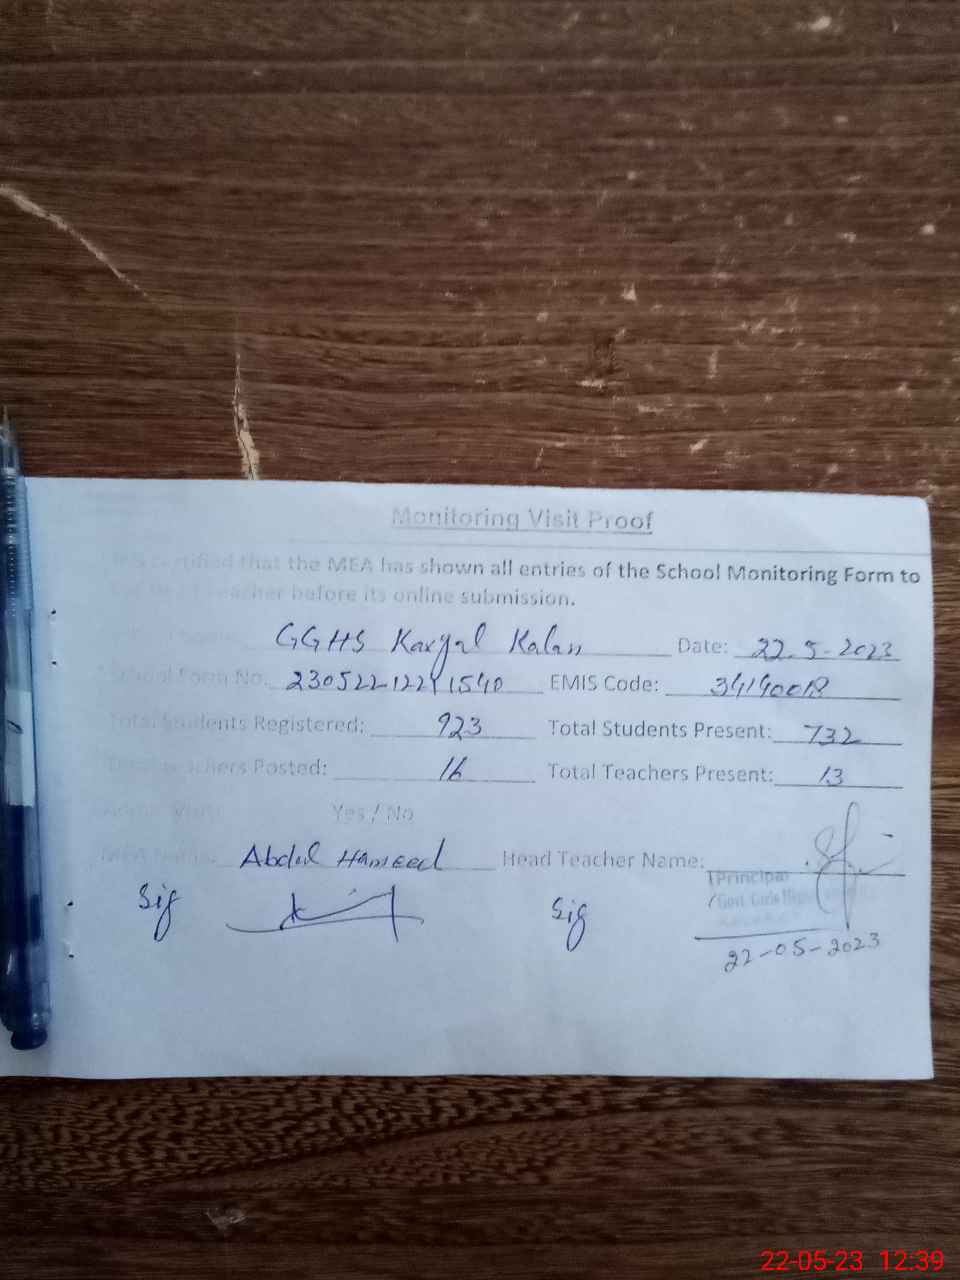 Monitoring Visit Proof
certified that the MEA has shown all entries of the School Monitoring Form to
Teacher before its online submission.
GGHS Karyal Kalan Date: 22.5-2023
School Form No. EMIS Code: 34140018
Total Students Registered: 923 Total Students Present: 732
Teachers Posted: 16 Total Teachers Present: 13
Yes / No
MEA Name: Abdul Hameed Head Teacher Name:
Principal
Sig Sig
Govt. Girls High
22-05-2023
22-05-23 12:39